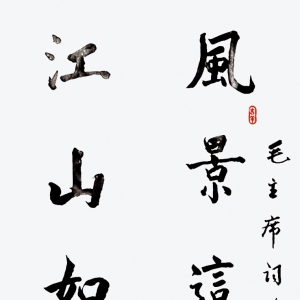 風景這
江山如
毛主席词